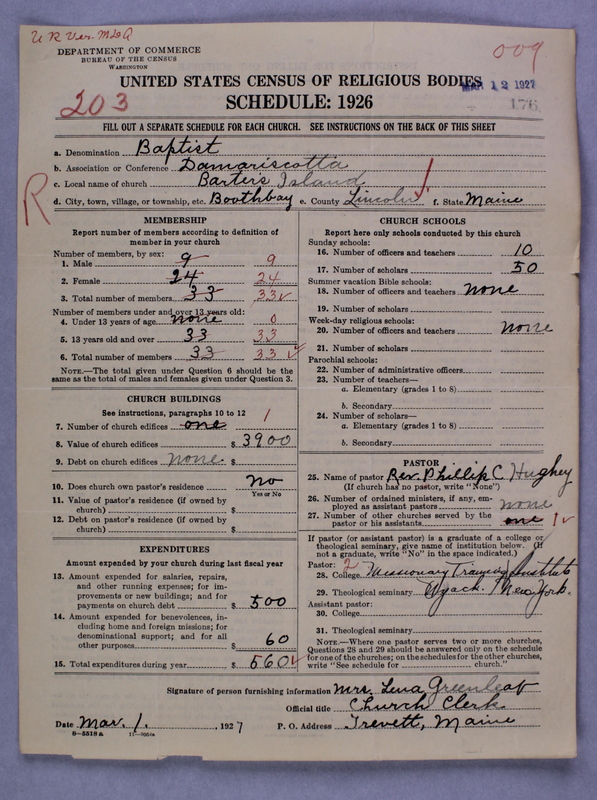 U R Ver. MLA
009
DEPARTMENT OF COMMERCE
BUREAU OF THE CENSUS
WASHINGTON
UNITED STATES CENSUS OF RELIGIOUS BODIES
MAR 12 1927
203
SCHEDULE: 1926
176
FILL OUT A SEPARATE SCHEDULE FOR EACH CHURCH. SEE INSTRUCTIONS ON THE BACK OF THIS SHEET
a. Denomination Baptist
b. Association or Conference Damariscotta
c. Local name of church Barter's Island
R
d. City, town, village, or township, etc. Boothbay e. County Lincoln f. State Maine
MEMBERSHIP
Report number of members according to definition of
member in your church
Number of members, by sex:
1. Male 9 9
2. Female 24 24
3. Total number of members 33 33
Number of members under and over 13 years old:
4. Under 13 years of age none 0
5. 13 years old and over 33 33
6. Total number of members 33 33
NOTE.—The total given under Question 6 should be the
same as the total of males and females given under Question 3.
CHURCH BUILDINGS
See instructions, paragraphs 10 to 12 1
7. Number of church edifices one
8. Value of church edifices $ 3900
9. Debt on church edifices none $
10. Does church own pastor's residence no
Yes or No
11. Value of pastor's residence (if owned by
church) $
12. Debt on pastor's residence (if owned by
church) $
EXPENDITURES
Amount expended by your church during last fiscal year
13. Amount expended for salaries, repairs,
and other running expenses; for im-
provements or new buildings; and for
payments on church debt $ 500
14. Amount expended for benevolences, in-
cluding home and foreign missions; for
denominational support; and for all
other purposes $ 60
15. Total expenditures during year $ 560
CHURCH SCHOOLS
Report here only schools conducted by this church
Sunday schools:
16. Number of officers and teachers 10
17. Number of scholars 50
Summer vacation Bible schools:
18. Number of officers and teachers none
19. Number of scholars
Week-day religious schools:
20. Number of officers and teachers none
21. Number of scholars
Parochial schools:
22. Number of administrative officers
23. Number of teachers—
a. Elementary (grades 1 to 8)
b. Secondary
24. Number of scholars—
a. Elementary (grades 1 to 8)
b. Secondary
PASTOR
25. Name of pastor Rev. Phillip C. Hughey
(If church has no pastor, write "None")
26. Number of ordained ministers, if any, em-
ployed as assistant pastors none
27. Number of other churches served by the
pastor or his assistants one 1
If pastor (or assistant pastor) is a graduate of a college or
theological seminary, give name of institution below. (If
not a graduate, write "No" in the space indicated.)
Pastor: 2
28. College Missionary Training Institute
29. Theological seminary Nyack. New York.
Assistant pastor:
30. College
31. Theological seminary
NOTE.—Where one pastor serves two or more churches,
Questions 28 and 29 should be answered only on the schedule
for one of the churches; on the schedules for the other churches,
write "See schedule for church."
Signature of person furnishing information Mrs. Lena Greenleaf
Official title Church Clerk
Date Mar. 1. , 1927 P. O. Address Trevett, Maine
8-5518a